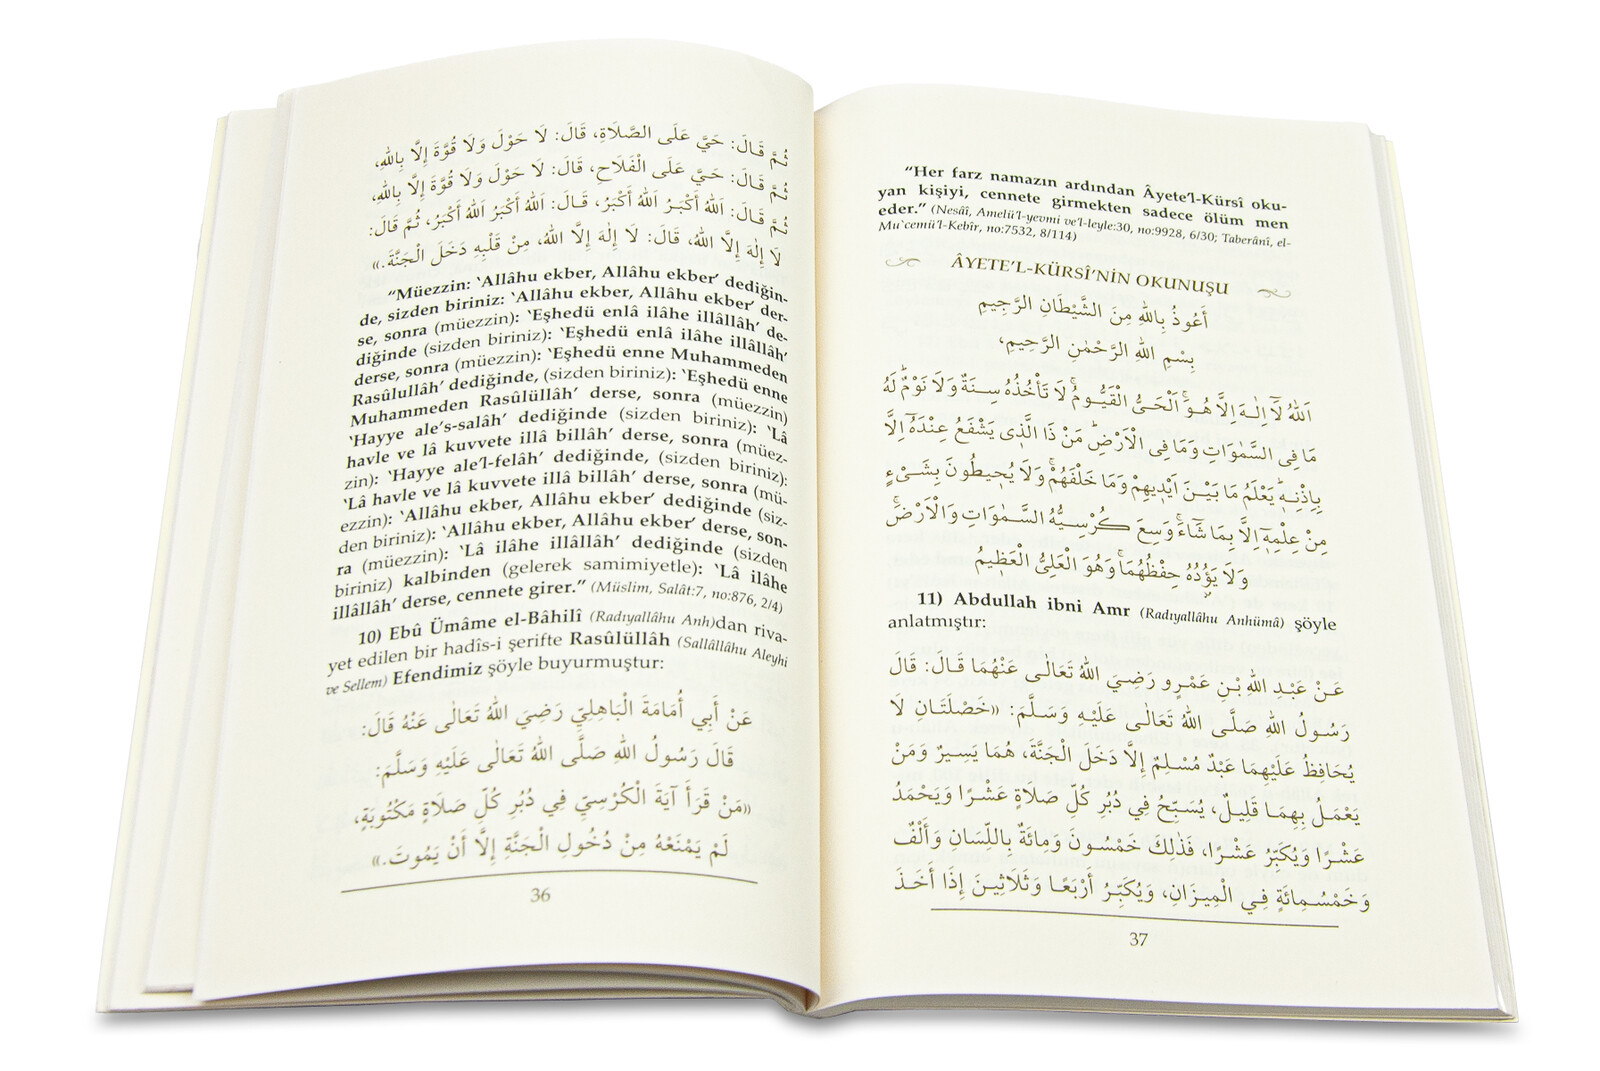 ثُمَّ قَالَ: حَيَّ عَلَى الصَّلَاةِ، قَالَ: لَا حَوْلَ وَلَا قُوَّةَ إِلَّا بِاللهِ،
ثُمَّ قَالَ: حَيَّ عَلَى الْفَلَاحِ، قَالَ: لَا حَوْلَ وَلَا قُوَّةَ إِلَّا بِاللهِ،
ثُمَّ قَالَ: اَللهُ أَكْبَرُ اَللهُ أَكْبَرُ، قَالَ: اَللهُ أَكْبَرُ اَللهُ أَكْبَرُ، ثُمَّ قَالَ:
لَا إِلٰهَ إِلَّا اللهُ، قَالَ: لَا إِلٰهَ إِلَّا اللهُ، مِنْ قَلْبِهِ دَخَلَ الْجَنَّةَ.»
“Müezzin: ‘Allâhu ekber, Allâhu ekber’ dediğin-
de, sizden biriniz: ‘Allâhu ekber, Allâhu ekber’ der-
se, sonra (müezzin): ‘Eşhedü enlâ ilâhe illâllâh’ de-
diğinde (sizden biriniz): ‘Eşhedü enlâ ilâhe illâllâh’
derse, sonra (müezzin): ‘Eşhedü enne Muhammeden
Rasûlullâh’ dediğinde, (sizden biriniz): ‘Eşhedü enne
Muhammeden Rasûlüllâh’ derse, sonra (müezzin)
‘Hayye ale’s-salâh’ dediğinde (sizden biriniz): ‘Lâ
havle ve lâ kuvvete illâ billâh’ derse, sonra (müez-
zin): ‘Hayye ale’l-felâh’ dediğinde, (sizden biriniz):
‘Lâ havle ve lâ kuvvete illâ billâh’ derse, sonra (mü-
ezzin): ‘Allâhu ekber, Allâhu ekber’ dediğinde (siz-
den biriniz): ‘Allâhu ekber, Allâhu ekber’ derse, son-
ra (müezzin): ‘Lâ ilâhe illâllâh’ dediğinde (sizden
biriniz) kalbinden (gelerek samimiyetle): ‘Lâ ilâhe
illâllâh’ derse, cennete girer.” (Müslim, Salât:7, no:876, 2/4)
10) Ebû Ümâme el-Bâhilî (Radıyallâhu Anh)dan riva-
yet edilen bir hadîs-i şerifte Rasûlüllâh (Sallâllâhu Aleyhi
ve Sellem) Efendimiz şöyle buyurmuştur:
عَنْ أَبِي أُمَامَةَ الْبَاهِلِيِّ رَضِيَ اللهُ تَعَالٰى عَنْهُ قَالَ:
قَالَ رَسُولُ اللهِ صَلَّى اللهُ تَعَالٰى عَلَيْهِ وَسَلَّمَ:
«مَنْ قَرَأَ آيَةَ الْكُرْسِيِّ فِي دُبُرِ كُلِّ صَلَاةٍ مَكْتُوبَةٍ،
لَمْ يَمْنَعْهُ مِنْ دُخُولِ الْجَنَّةِ إِلَّا أَنْ يَمُوتَ.»
36
“Her farz namazın ardından Âyete’l-Kürsî oku-
yan kişiyi, cennete girmekten sadece ölüm men
eder.” (Nesâî, Amelü’l-yevmi ve’l-leyle:30, no:9928, 6/30; Taberânî, el-
Mu`cemü’l-Kebîr, no:7532, 8/114)
ÂYETE’L-KÜRSÎ’NİN OKUNUŞU
أَعُوذُ بِاللهِ مِنَ الشَّيْطَانِ الرَّجِيمِ
بِسْمِ اللهِ الرَّحْمٰنِ الرَّحِيمِ،
اَللهُ لَٓا اِلٰهَ اِلَّا هُوَۚ اَلْحَيُّ الْقَيُّومُۚ لَا تَأْخُذُهُ سِنَةٌ وَلَا نَوْمٌۜ لَهُ
مَا فِي السَّمٰوَاتِ وَمَا فِي الْاَرْضِۜ مَنْ ذَا الَّذٖي يَشْفَعُ عِنْدَهُٓ اِلَّا
بِاِذْنِهٖۜ يَعْلَمُ مَا بَيْنَ اَيْدٖيهِمْ وَمَا خَلْفَهُمْۚ وَلَا يُحٖيطُونَ بِشَيْءٍ
مِنْ عِلْمِهٖٓ اِلَّا بِمَا شَٓاءَۚ وَسِعَ كُرْسِيُّهُ السَّمٰوَاتِ وَالْاَرْضَۚ
وَلَا يَؤُ۫دُهُ حِفْظُهُمَاۚ وَهُوَ الْعَلِيُّ الْعَظٖيمُ
11) Abdullah ibni Amr (Radıyallâhu Anhümâ) şöyle
anlatmıştır:
عَنْ عَبْدِ اللهِ بْنِ عَمْرٍو رَضِيَ اللهُ تَعَالٰى عَنْهُمَا قَالَ: قَالَ
رَسُولُ اللهِ صَلَّى اللهُ تَعَالٰى عَلَيْهِ وَسَلَّمَ: «خَصْلَتَانِ لَا
يُحَافِظُ عَلَيْهِمَا عَبْدٌ مُسْلِمٌ إِلَّا دَخَلَ الْجَنَّةَ، هُمَا يَسِيرٌ وَمَنْ
يَعْمَلُ بِهِمَا قَلِيلٌ، يُسَبِّحُ فِي دُبُرِ كُلِّ صَلَاةٍ عَشْرًا وَيَحْمَدُ
عَشْرًا وَيُكَبِّرُ عَشْرًا، فَذٰلِكَ خَمْسُونَ وَمِائَةٌ بِاللِّسَانِ وَأَلْفٌ
وَخَمْسُمِائَةٍ فِي الْمِيزَانِ، وَيُكَبِّرُ أَرْبَعًا وَثَلَاثِينَ إِذَا أَخَذَ
37